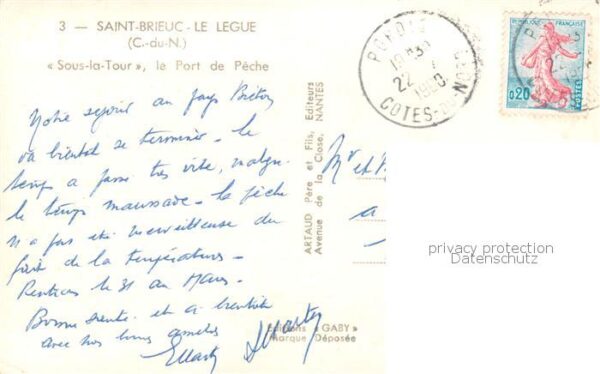 3 — SAINT-BRIEUC - LE LEGUE
(C.-du-N.)
« Sous-la-Tour », le Port de Pêche
Notre séjour au pays Breton
va bientôt se terminer - le
temps a passé très vite, malgré
le temps maussade - la pêche
n'a pas été merveilleuse du
fait de la température -
Rentrons le 31 au Mans -
Bonne santé et à bientôt
avec nos bonnes amitiés
ARTAUD Père et Fils, Éditeurs
Avenue de la Close, NANTES
Editions « GABY »
Marque Déposée
Mr et
a
COTES-DU-NORD
22
1960
REPUBLIQUE FRANÇAISE
0,20
POSTES
privacy protection
Datenschutz